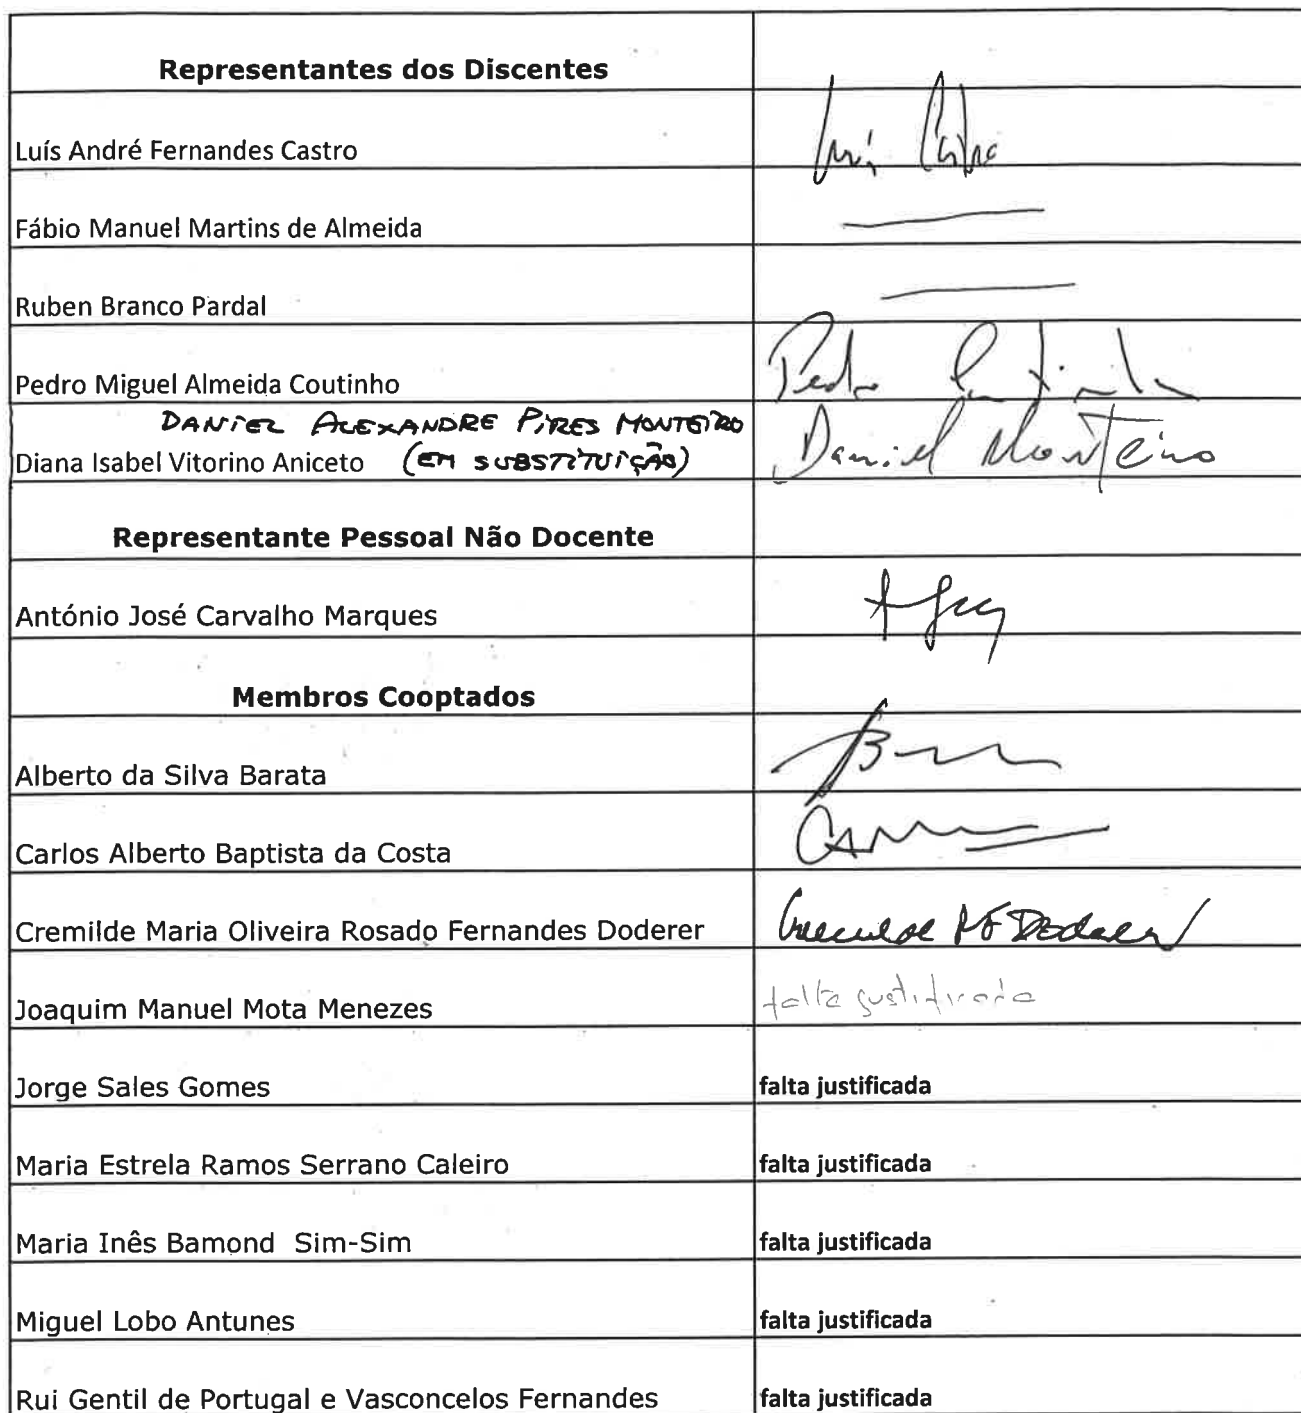 Representantes dos Discentes
Luís André Fernandes Castro Luís Castro
Fábio Manuel Martins de Almeida
Ruben Branco Pardal
Pedro Miguel Almeida Coutinho Pedro Coutinho
DANIEL ALEXANDRE PIRES MONTEIRO
Diana Isabel Vitorino Aniceto (EM SUBSTITUIÇÃO) Daniel Monteiro
Representante Pessoal Não Docente
António José Carvalho Marques
Membros Cooptados
Alberto da Silva Barata
Carlos Alberto Baptista da Costa
Cremilde Maria Oliveira Rosado Fernandes Doderer
Joaquim Manuel Mota Menezes falta justificada
Jorge Sales Gomes falta justificada
Maria Estrela Ramos Serrano Caleiro falta justificada
Maria Inês Bamond Sim-Sim falta justificada
Miguel Lobo Antunes falta justificada
Rui Gentil de Portugal e Vasconcelos Fernandes falta justificada